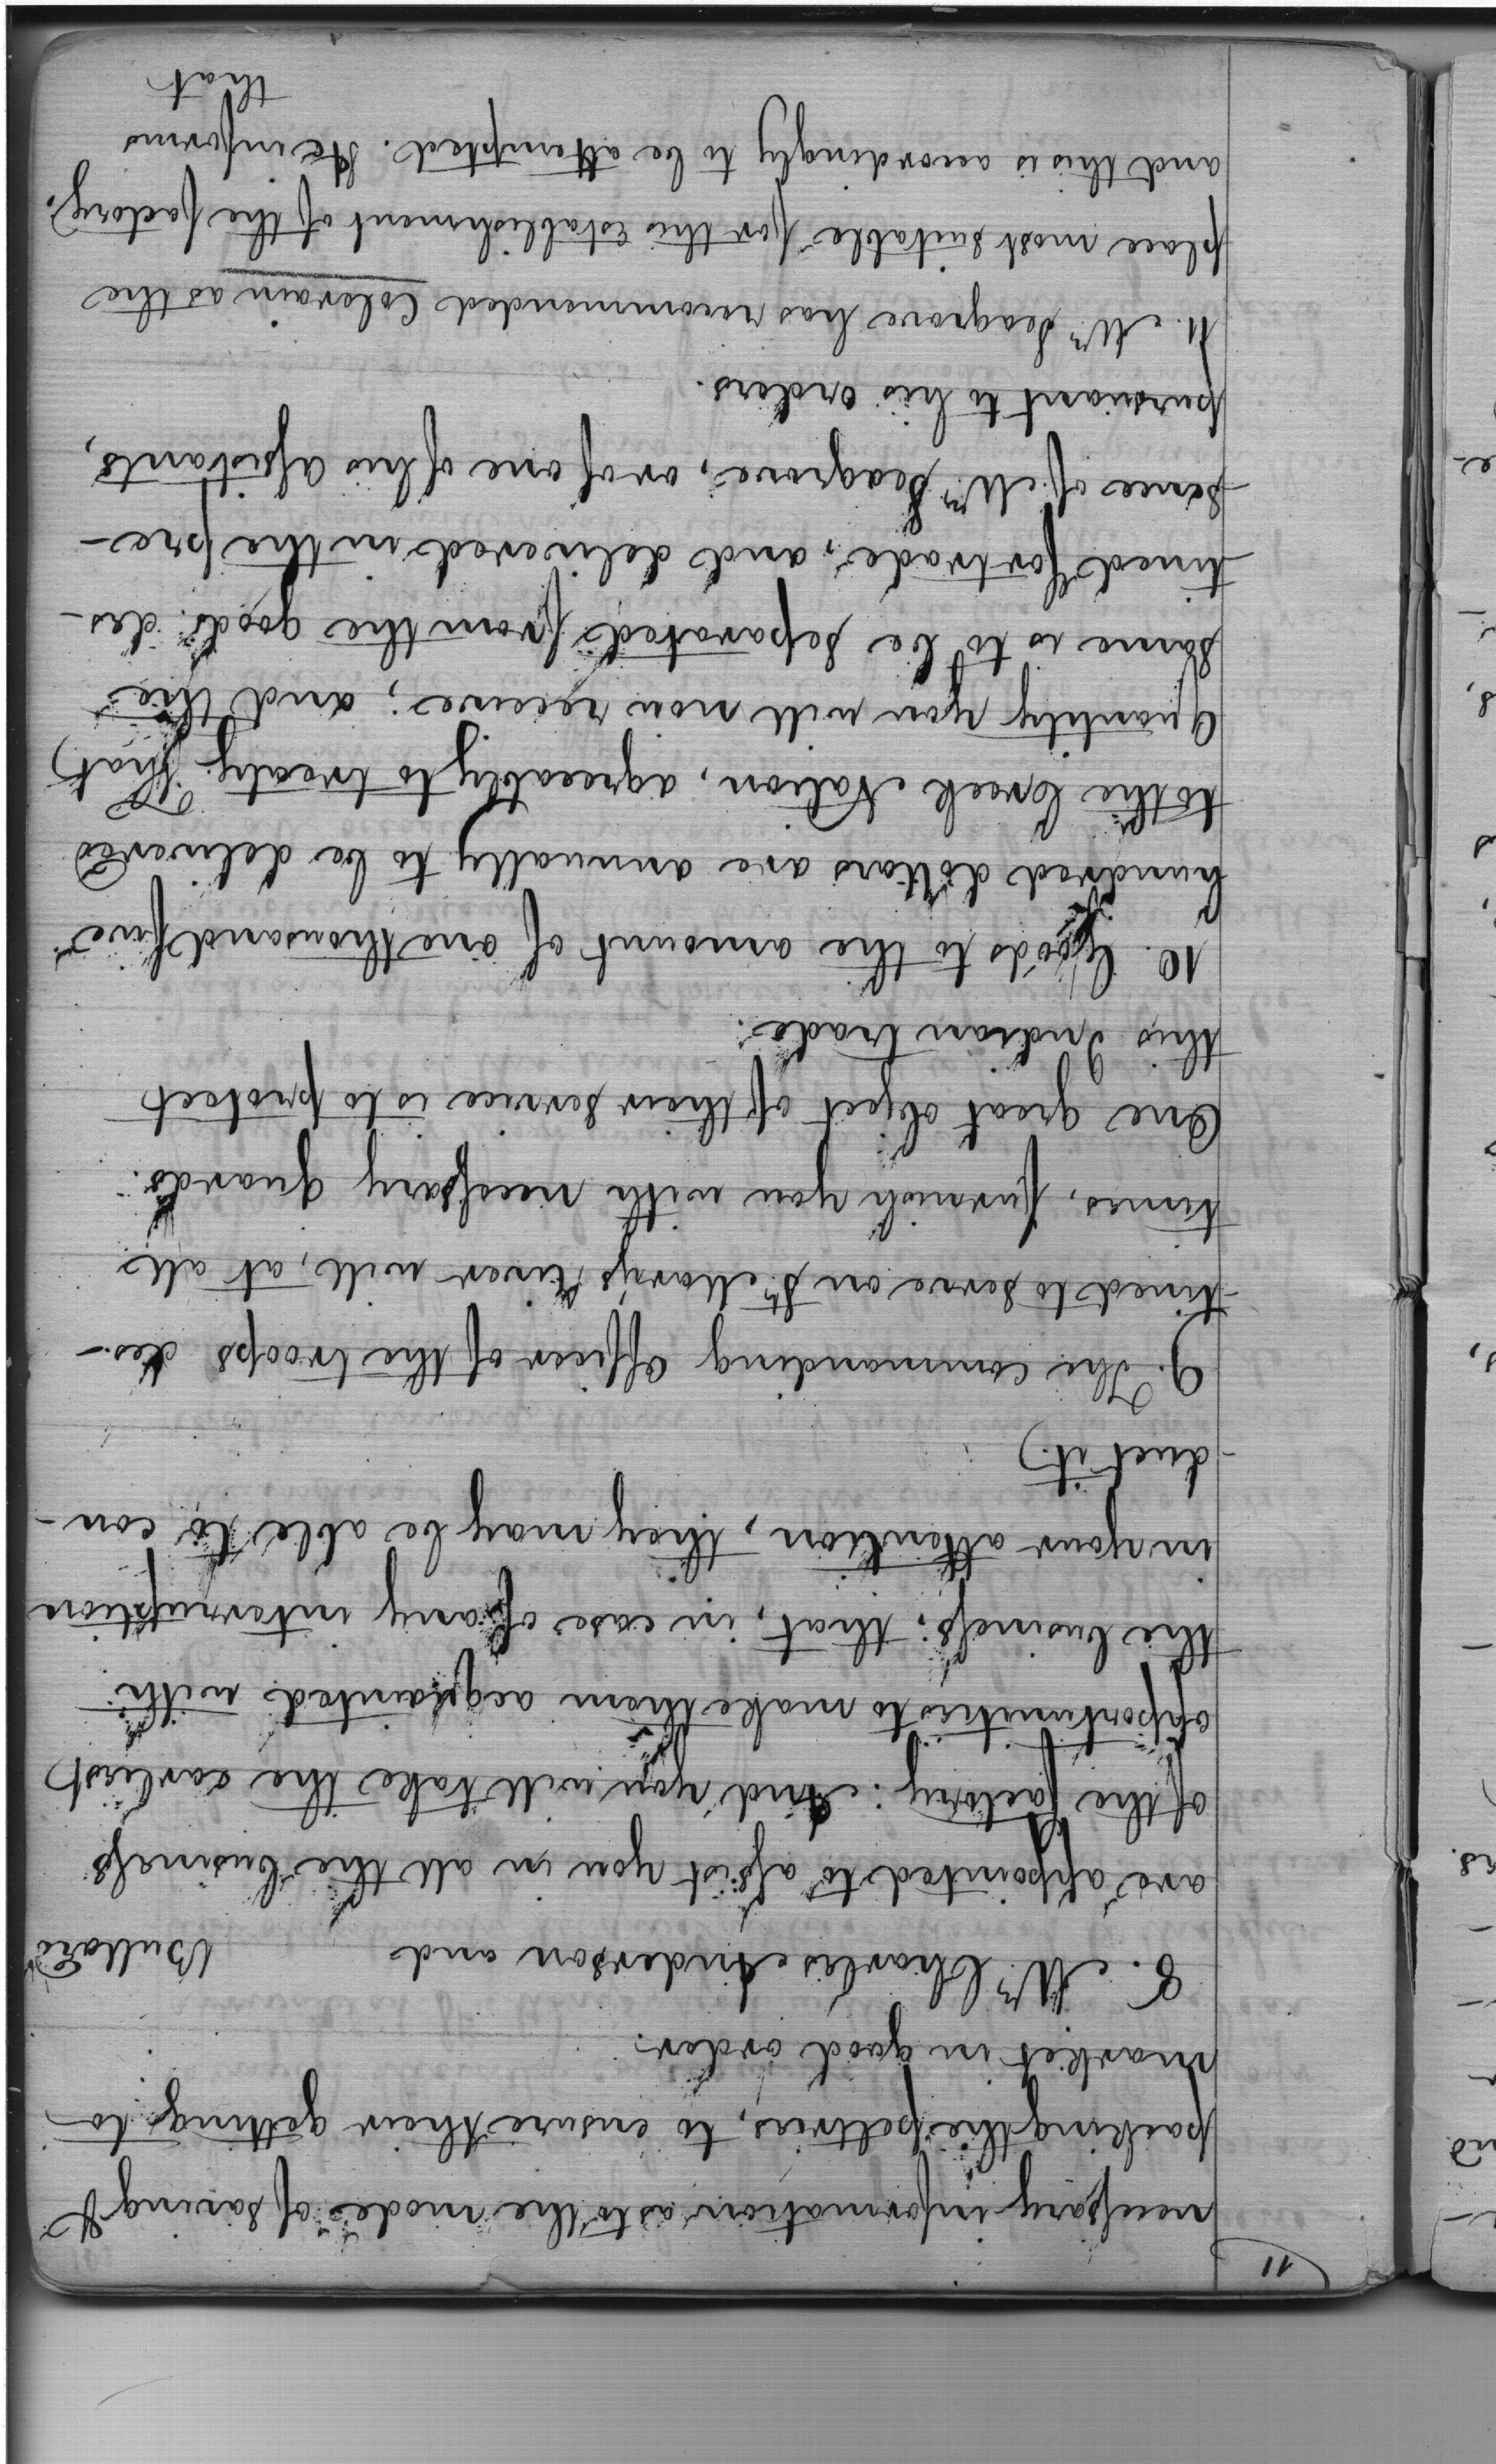 11
necessary information as to the mode of saving &
packing the peltries, to ensure their getting to
market in good order.
8. Mr Charles Anderson and Bullard
are appointed to assist you in all the business
of the factory: And you will take the earliest
opportunities to make them acquainted with
the business; that, in case of any interruption
in your attention, they may be able to con-
-duct it.
9. The commanding Officer of the troops des-
-tined to serve on St Mary's River will, at all
times, furnish you with necessary guards.
One great object of their service is to protect
this Indian trade.
10. Goods to the amount of one thousand five
hundred dollars are annually to be delivered
to the Creek Nation, agreeably to treaty. That
Quantity you will now receive; and the
same is to be separated from the goods des-
-tined for trade, and delivered in the pre-
-sence of Mr Seagrove, or of one of his assistants,
pursuant to his orders.
11. Mr Seagrove has recommended Colerain as the
place most suitable for this establishment of the factory,
and this is accordingly to be attempted. He informs
that